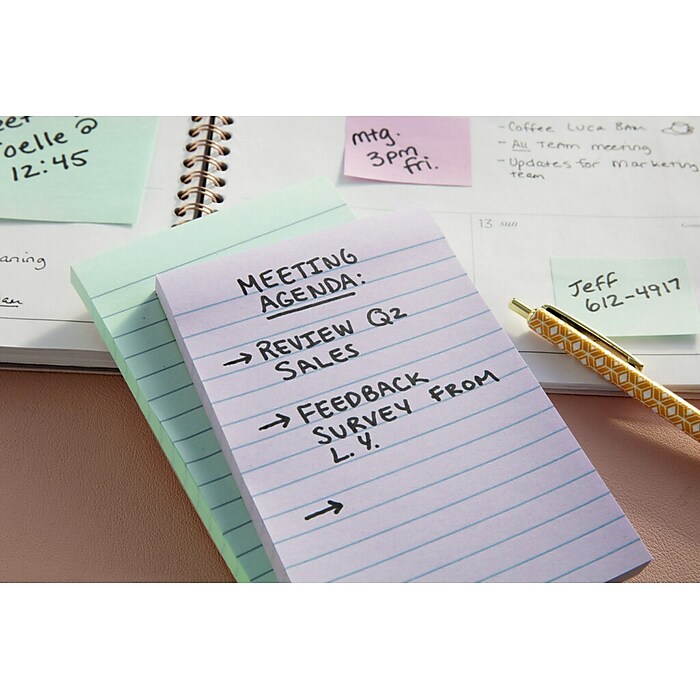 oelle @
12:45
mtg.
3pm
fri.
- Coffee Luca 8am
- All Team meeting
- Updates for marketing
team
13 sun
Jeff
612-4917
MEETING
AGENDA:
→ REVIEW Q2
SALES
→ FEEDBACK
SURVEY FROM
L.Y.
→